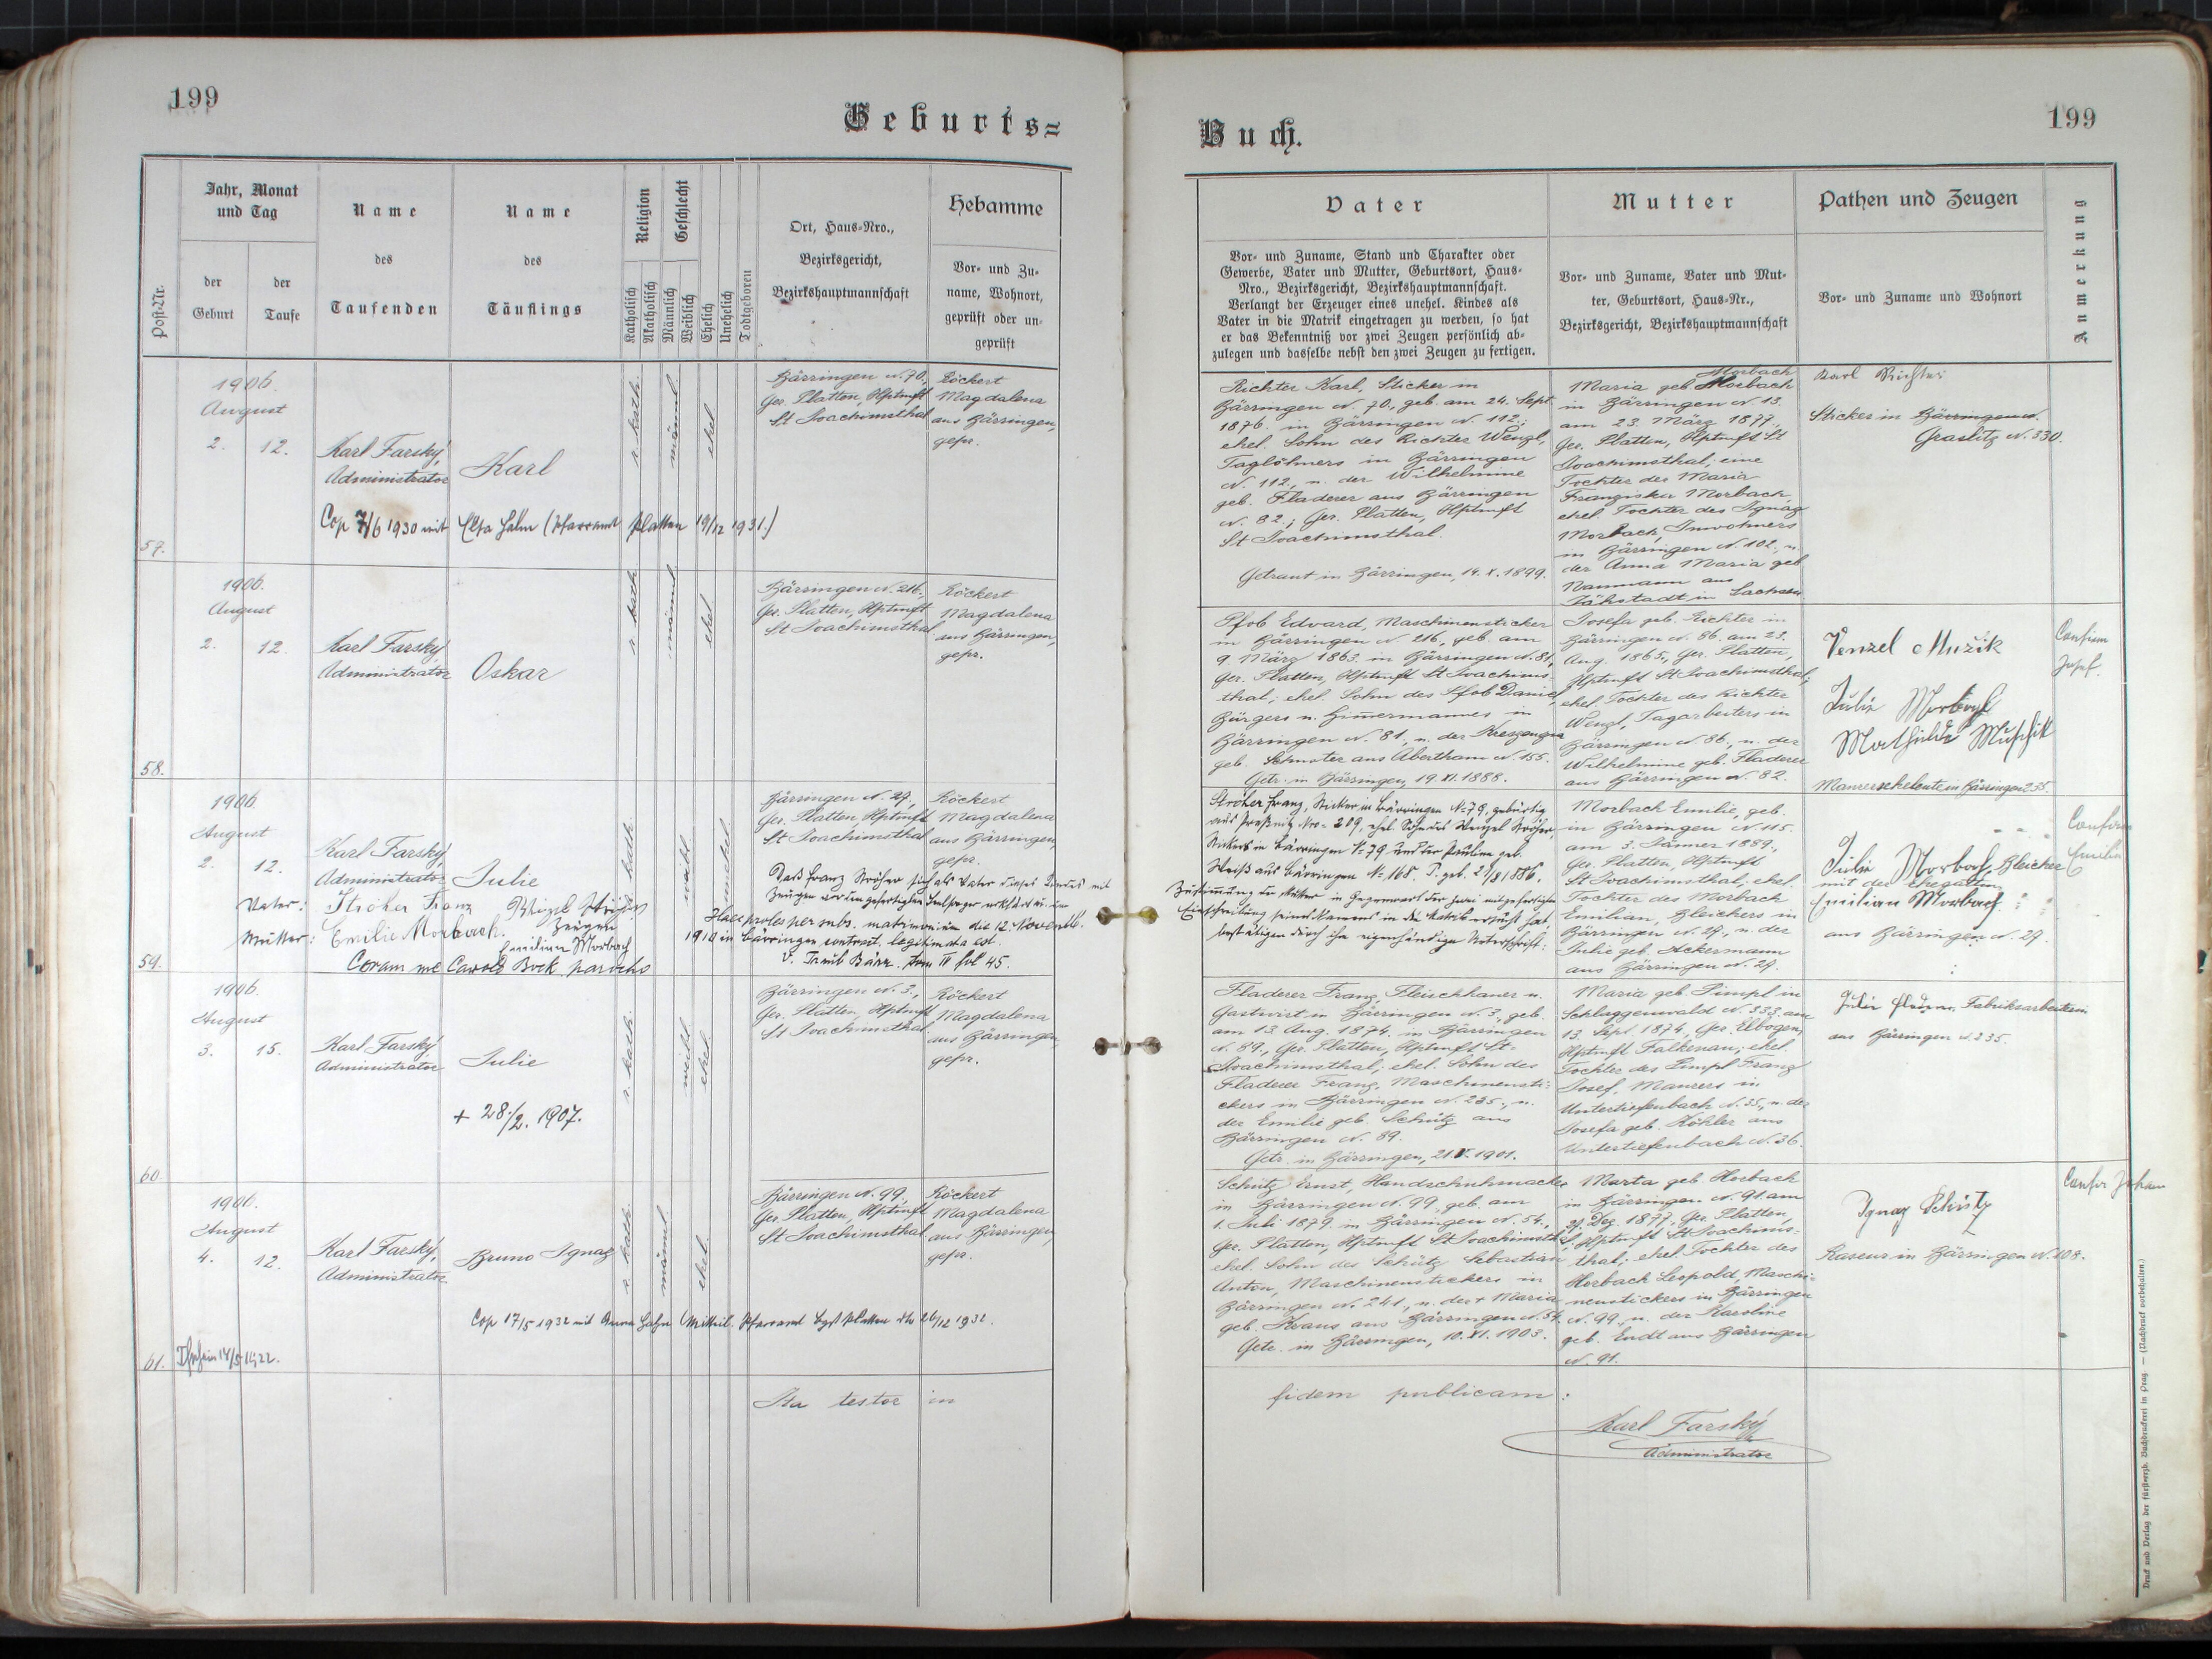 199
Geburts=
Post-Nr.
Jahr, Monat
und Tag
der
Geburt
der
Taufe
Name
des
Taufenden
Name
des
Täuflings
Religion
Katholisch
Akatholisch
Geschlecht
Männlich
Weiblich
Ehelich
Unehelich
Todtgeboren
Ort, Haus-Nro.,
Bezirksgericht,
Bezirkshauptmannschaft
Hebamme
Vor- und Zu-
name, Wohnort,
geprüft oder un-
geprüft
57.
1906.
August
2. 12.
Karl Farský,
Administrator
Karl
r. kath.
männl.
ehel
Bärringen N. 70,
Ger. Platten, Hptmft
St Joachimsthal
Röckert
Magdalena
aus Bärringen,
gepr.
Cop 7/6 1930 mit Elsa Hahn (Pfarramt Platten 19/12 1931.)
58.
1906.
August
2. 12.
Karl Farský
Administrator
Oskar
r. kath.
männl.
ehel
Bärringen N. 216,
Ger. Platten, Hptmft
St Joachimsthal
Röckert
Magdalena
aus Bärringen,
gepr.
59.
1906.
August
2. 12.
Karl Farský,
Administrator
Julie
r. kath.
weibl.
unehel.
Bärringen N. 29,
Ger. Platten, Hptmft
St Joachimsthal
Röckert
Magdalena
aus Bärringen,
gepr.
Vater: Ströher Franz
Mutter: Emilie Morbach.
Zeugen
Emilian Morbach
Coram me Carolo Bock parocho
Daß Franz Ströher sich als Vater dieses Kindes mit
Haec proles per subs. matrimonium die 12. Novemb.
1910 in Bärringen contract. legitimata est.
V. Traub Bärr. tom IV fol 45.
60.
1906.
August
3. 15.
Karl Farský
Administrator
Julie
r. kath.
weibl.
ehel.
Bärringen N. 3.,
Ger. Platten, Hptmft
St Joachimsthal.
Röckert
Magdalena
aus Bärringen,
gepr.
+ 28./2. 1907.
61.
1906.
August
4. 12.
Karl Farský,
Administrator
Bruno Ignaz
r. kath.
männl
ehel.
Bärringen N. 99,
Ger. Platten, Hptmft
St Joachimsthal
Röckert
Magdalena
aus Bärringen,
gepr.
Cop 17/5 1932 mit Anna Hahn (Mitteil. Pfarramt Platten 26/12 1932.
14/5 1922.
Ita testor in
199
Buch.
Vater
Vor- und Zuname, Stand und Charakter oder
Gewerbe, Vater und Mutter, Geburtsort, Haus-
Nro., Bezirksgericht, Bezirkshauptmannschaft.
Verlangt der Erzeuger eines unehel. Kindes als
Vater in die Matrik eingetragen zu werden, so hat
er das Bekenntniß vor zwei Zeugen persönlich ab-
zulegen und dasselbe nebst den zwei Zeugen zu fertigen.
Mutter
Vor- und Zuname, Vater und Mut-
ter, Geburtsort, Haus-Nr.,
Bezirksgericht, Bezirkshauptmannschaft
Pathen und Zeugen
Vor- und Zuname und Wohnort
Anmerkung
Richter Karl, Sticker in
Bärringen N. 70, geb. am 24. Sept
1876. in Bärringen N. 112.;
ehel. Sohn des Richter Wenzl,
Taglöhners in Bärringen
N. 112, u. der Wilhelmine
geb. Fladerer aus Bärringen
N. 82.; Ger. Platten, Hptmft
St Joachimsthal.
Getraut in Bärringen, 14. X. 1899.
Morbach
Maria geb. Morbach
in Bärringen N. 13.
am 23. März 1877.,
Ger. Platten, Hptmft St
Joachimsthal, eine
Tochter der Maria
Franziska Morbach,
ehel. Tochter des Ignaz
Morbach, Inwohners
in Bärringen N. 102., u.
der Anna Maria geb
Naumann aus
Jöhstadt in Sachsen.
Karl Richter
Sticker in Bärringen N.
Graslitz N. 330.
Pfob Edvard, Maschinensticker
in Bärringen N. 216, geb. am
9. März 1863. in Bärringen N. 81,
Ger. Platten, Hptmft St Joachims-
thal; ehel. Sohn des Pfob Daniel,
Bürgers u. Zimmermannes in
Bärringen N. 81, u. der Kreszenzia
geb. Schuster aus Abertham N. 155.
Getr. in Bärringen, 19. XI. 1888.
Josefa geb. Richter in
Bärringen N. 86. am 23.
Aug. 1865., Ger. Platten,
Hptmft St Joachimsthal;
ehel. Tochter des Richter
Wenzl, Tagarbeiters in
Bärringen N. 86., u. der
Wilhelmine geb. Fladerer
aus Bärringen N. 82.
Venzel Mužik
Julie Morbach
Mathilde Muschik
Maurerseheleute in Bärringen 235.
Confirm
Josef.
Ströher Franz, Sticker in Bärringen N. 79, gebürtig
aus Preßnitz Nro. 209, ehel. Sohn des Wenzel Ströher,
Stickers in Bärringen N. 79 und der Pauline geb.
Weiß aus Bärringen N. 168.
Zustimmung der Mutter in Gegenwart der zwei mitgefertigten
Einschreibung seines Namens in die Matrik ersucht hat,
bestätigen durch ihre eigenhändige Unterschrift:
Morbach Emilie, geb.
in Bärringen N. 115.
am 3. Jänner 1889.,
Ger. Platten, Hptmft
St Joachimsthal; ehel.
Tochter des Morbach
Emilian, Bleichers in
Bärringen N. 29., u. der
Julie geb. Ackermann
aus Bärringen N. 29.
Julie Morbach, Bleicher
mit der Ehegatten
Emilian Morbach
aus Bärringen N. 29.
Confirm
Emilie
Fladerer Franz, Fleischhauer u.
Gastwirt in Bärringen N. 3, geb.
am 13. Aug. 1874. in Bärringen
N. 89., Ger. Platten, Hptmft St.
Joachimsthal; ehel. Sohn des
Fladerer Franz, Maschinensti-
ckers in Bärringen N. 235., u.
der Emilie geb. Schütz aus
Bärringen N. 89.
Getr. in Bärringen, 21. V. 1901.
Maria geb. Pimpl in
Schlaggenwald N. 333. am
13. Sept. 1874, Ger. Elbogen,
Hptmft Falkenau; ehel.
Tochter des Pimpl Franz
Josef, Maurers in
Untertiefenbach N. 35., u. der
Josefa geb. Köhler aus
Untertiefenbach N. 36.
Julie Fladerer, Fabriksarbeiterin
aus Bärringen N. 235.
Schütz Ernst, Handschuhmacher
in Bärringen N. 99, geb. am
1. Juli 1879. in Bärringen N. 54.,
Ger. Platten, Hptmft St Joachimsthal,
ehel. Sohn des Schütz Sebastian
Anton, Maschinenstickers in
Bärringen N. 241., u. der + Maria
geb. Kraus aus Bärringen N. 54.
Getr. in Bärringen, 10. XI. 1903.
Marta geb. Horbach
in Bärringen N. 91 am
Dez. 1877, Ger. Platten,
Hptmft St Joachims-
thal; ehel. Tochter des
Horbach Leopold, Maschi-
nenstickers in Bärringen
N. 99., u. der Karoline
geb. Endt aus Bärringen
N. 91.
Ignaz Schütz
Raseur in Bärringen N. 108.
Confir Johann
fidem publicam:
Karl Farský
Administrator
Druck und Verlag der fürsterzb. Buchdruckerei in Prag. — (Nachdruck vorbehalten.)